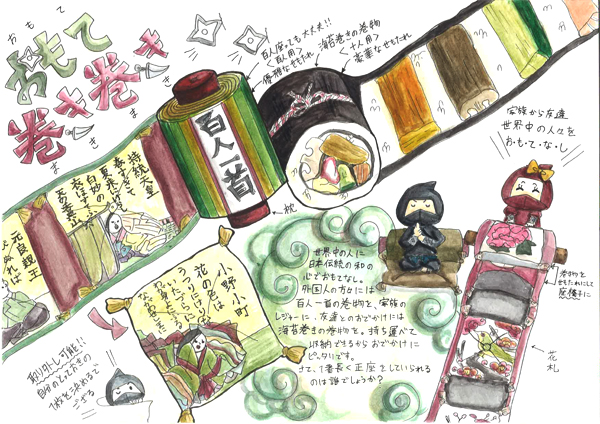 おもて
おもて
巻き巻き
まきまき
百人座っても大丈夫!!
<百人用>
優雅なせもたれ
海苔巻きの巻物
<十人用>
豪華なせもたれ
百人一首
枕
家族から友達
世界中の人々を
お・も・て・な・し
持統天皇
春すぎて
夏来に
白妙の
衣ほすてふ
天の香具山
元良親王
わびぬれば
小野小町
花の色は
うつりにけりな
いたづらに
わが身世にふる
取り外し可能!!
自分のとっておきの
1枚を決めるで
ござる
世界中の人に
日本伝統の和の
心でおもてなし。
外国人の方々には
百人一首の巻物を、家族の
レジャーに、友達とのおでかけには
海苔巻きの巻物を。持ち運べて
収納できるからおでかけに
ピッタリです。
さて、1番長く正座をしていられる
のは誰でしょうか?
巻物を
せもたれにして
座椅子に
花札